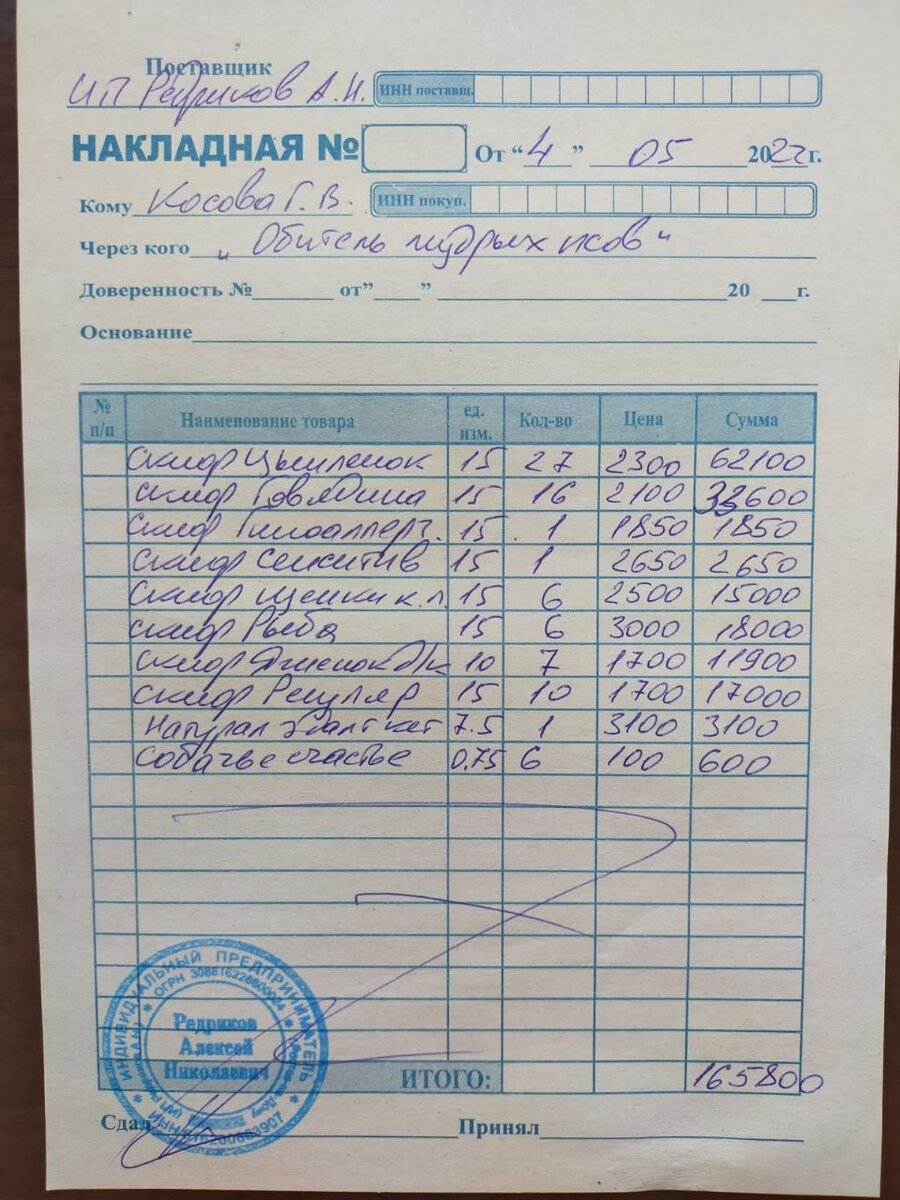 Поставщик
ИП Редриков А.Н. ИНН поставщ.
НАКЛАДНАЯ № От “4” 05 2022г.
Кому Косова Г.В. ИНН покуп.
Через кого „Обитель мудрых псов“
Доверенность № от” ” 20 г.
Основание
№ п/п Наименование товара ед. изм. Кол-во Цена Сумма
Скиф Цыпленок 15 27 2300 62100
Скиф Говядина 15 16 2100 33600
Скиф Гипоаллерг. 15 1 1850 1850
Скиф Сенситив 15 1 2650 2650
Скиф щенки к.п. 15 6 2500 15000
Скиф Рыба 15 6 3000 18000
Скиф Ягненок 10 7 1700 11900
Скиф Регуляр 15 10 1700 17000
Натурал эдалт кет 7.5 1 3100 3100
Собачье счастье 0.75 6 100 600
ИНДИВИДУАЛЬНЫЙ ПРЕДПРИНИМАТЕЛЬ
ОГРН
Редриков
Алексей
Николаевич
ИТОГО: 165800
Сдал Принял